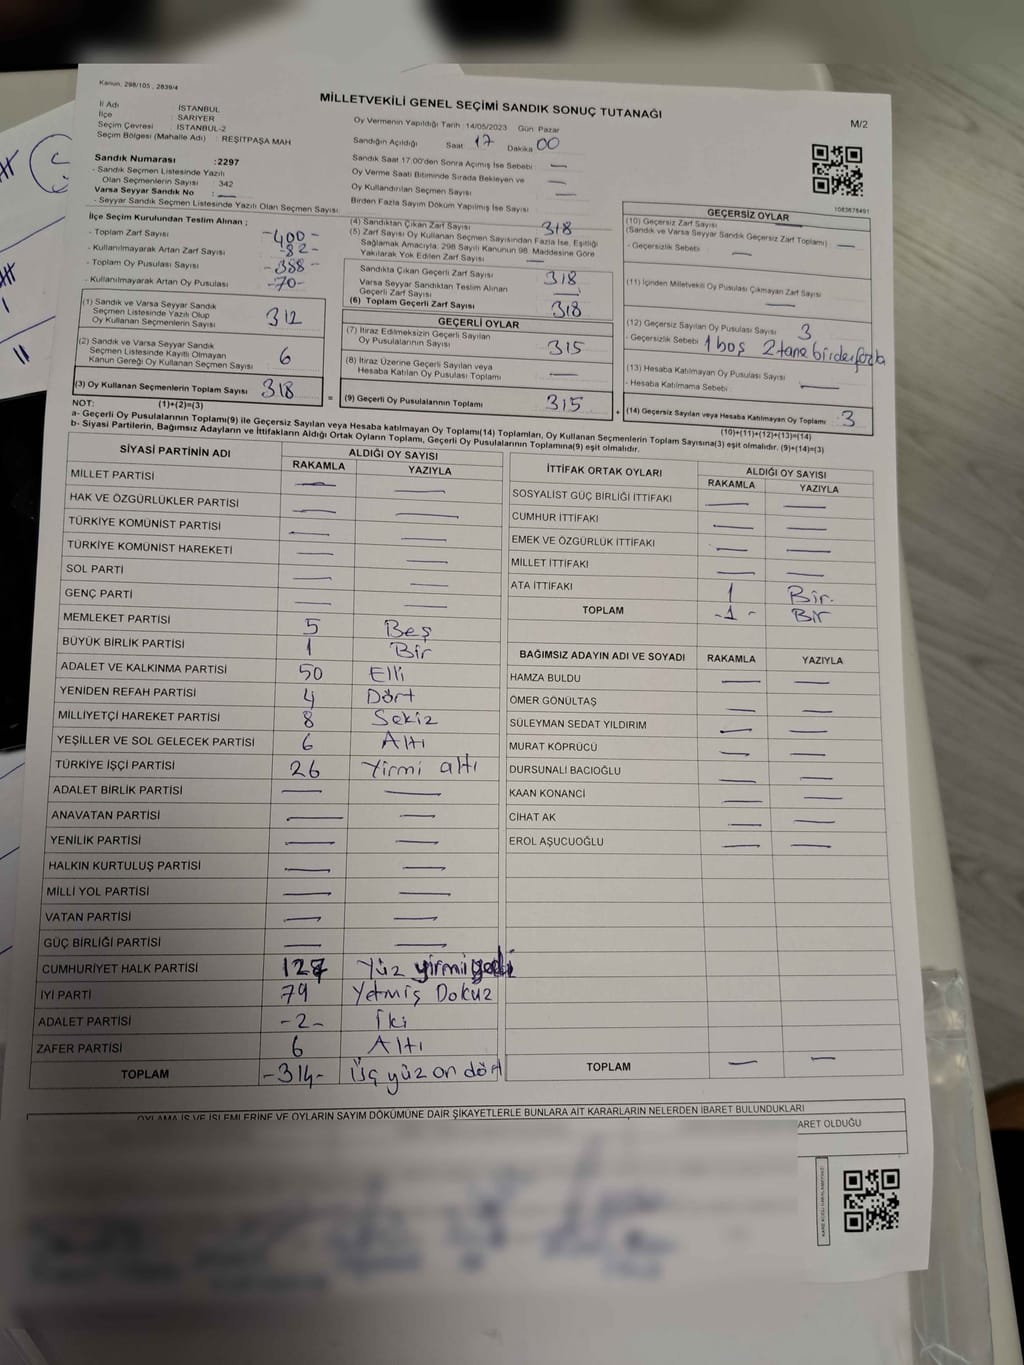 Kanun, 298/105 , 2839/4
MİLLETVEKİLİ GENEL SEÇİMİ SANDIK SONUÇ TUTANAĞI
M/2
İl Adı : İSTANBUL
İlçe : SARIYER
Seçim Çevresi : İSTANBUL-2
Seçim Bölgesi (Mahalle Adı) : REŞİTPAŞA MAH
Sandık Numarası :2297
- Sandık Seçmen Listesinde Yazılı
Olan Seçmenlerin Sayısı : 342
Varsa Seyyar Sandık No : —
- Seyyar Sandık Seçmen Listesinde Yazılı Olan Seçmen Sayısı
Oy Vermenin Yapıldığı Tarih :14/05/2023 Gün: Pazar
Sandığın Açıldığı Saat 17 Dakika 00
Sandık Saat 17.00'den Sonra Açımış İse Sebebi —
Oy Verme Saati Bitiminde Sırada Bekleyen ve —
Oy Kullandırılan Seçmen Sayısı —
Birden Fazla Sayım Döküm Yapılmış İse Sayısı
1083678491
İlçe Seçim Kurulundan Teslim Alınan ;
- Toplam Zarf Sayısı -400-
- Kullanılmayarak Artan Zarf Sayısı 82-
- Toplam Oy Pusulası Sayısı -388-
- Kullanılmayarak Artan Oy Pusulası -70-
(1) Sandık ve Varsa Seyyar Sandık
Seçmen Listesinde Yazılı Olup
Oy Kullanan Seçmenlerin Sayısı 312
(2) Sandık ve Varsa Seyyar Sandık
Seçmen Listesinde Kayıtlı Olmayan
Kanun Gereği Oy Kullanan Seçmen Sayısı 6
(3) Oy Kullanan Seçmenlerin Toplam Sayısı 318
(4) Sandıktan Çıkan Zarf Sayısı 318
(5) Zarf Sayısı Oy Kullanan Seçmen Sayısından Fazla İse, Eşitliği
Sağlamak Amacıyla, 298 Sayılı Kanunun 98. Maddesine Göre
Yakılarak Yok Edilen Zarf Sayısı —
Sandıkta Çıkan Geçerli Zarf Sayısı 318
Varsa Seyyar Sandıktan Teslim Alınan
Geçerli Zarf Sayısı —
(6) Toplam Geçerli Zarf Sayısı 318
GEÇERLİ OYLAR
(7) İtiraz Edilmeksizin Geçerli Sayılan
Oy Pusulalarının Sayısı 315
(8) İtiraz Üzerine Geçerli Sayılan veya
Hesaba Katılan Oy Pusulası Toplamı —
= (9) Geçerli Oy Pusulalarının Toplamı 315
GEÇERSİZ OYLAR
(10) Geçersiz Zarf Sayısı
(Sandık ve Varsa Seyyar Sandık Geçersiz Zarf Toplamı) —
- Geçersizlik Sebebi: —
(11) İçinden Milletvekili Oy Pusulası Çıkmayan Zarf Sayısı
—
(12) Geçersiz Sayılan Oy Pusulası Sayısı 3
- Geçersizlik Sebebi 1 boş 2 tane birden fazla
(13) Hesaba Katılmayan Oy Pusulası Sayısı
- Hesaba Katılmama Sebebi —
+ (14) Geçersiz Sayılan veya Hesaba Katılmayan Oy Toplamı 3
NOT: (1)+(2)=(3)
(10)+(11)+(12)+(13)=(14)
a- Geçerli Oy Pusulalarının Toplamı(9) ile Geçersiz Sayılan veya Hesaba katılmayan Oy Toplamı(14) Toplamları, Oy Kullanan Seçmenlerin Toplam Sayısına(3) eşit olmalıdır. (9)+(14)=(3)
b- Siyasi Partilerin, Bağımsız Adayların ve İttifakların Aldığı Ortak Oyların Toplamı, Geçerli Oy Pusulalarının Toplamına(9) eşit olmalıdır.
SİYASİ PARTİNİN ADI ALDIĞI OY SAYISI
RAKAMLA YAZIYLA
MİLLET PARTİSİ — —
HAK VE ÖZGÜRLÜKLER PARTİSİ — —
TÜRKİYE KOMÜNİST PARTİSİ — —
TÜRKİYE KOMÜNİST HAREKETİ — —
SOL PARTİ — —
GENÇ PARTİ — —
MEMLEKET PARTİSİ 5 Beş
BÜYÜK BİRLİK PARTİSİ 1 Bir
ADALET VE KALKINMA PARTİSİ 50 Elli
YENİDEN REFAH PARTİSİ 4 Dört
MİLLİYETÇİ HAREKET PARTİSİ 8 Sekiz
YEŞİLLER VE SOL GELECEK PARTİSİ 6 Altı
TÜRKİYE İŞÇİ PARTİSİ 26 Yirmi altı
ADALET BİRLİK PARTİSİ — —
ANAVATAN PARTİSİ — —
YENİLİK PARTİSİ — —
HALKIN KURTULUŞ PARTİSİ — —
MİLLİ YOL PARTİSİ — —
VATAN PARTİSİ — —
GÜÇ BİRLİĞİ PARTİSİ — —
CUMHURİYET HALK PARTİSİ 127 Yüz yirmi yedi
İYİ PARTİ 79 Yetmiş Dokuz
ADALET PARTİSİ -2- İki
ZAFER PARTİSİ 6 Altı
TOPLAM -314- Üç yüz on dört
İTTİFAK ORTAK OYLARI ALDIĞI OY SAYISI
RAKAMLA YAZIYLA
SOSYALİST GÜÇ BİRLİĞİ İTTİFAKI — —
CUMHUR İTTİFAKI — —
EMEK VE ÖZGÜRLÜK İTTİFAKI — —
MİLLET İTTİFAKI — —
ATA İTTİFAKI 1 Bir.
TOPLAM -1- Bir
BAĞIMSIZ ADAYIN ADI VE SOYADI RAKAMLA YAZIYLA
HAMZA BULDU — —
ÖMER GÖNÜLTAŞ — —
SÜLEYMAN SEDAT YILDIRIM — —
MURAT KÖPRÜCÜ — —
DURSUNALİ BACIOĞLU — —
KAAN KONANCİ — —
CİHAT AK — —
EROL AŞUCUOĞLU — —
TOPLAM — —
OYLAMA İŞ VE İŞLEMLERİNE VE OYLARIN SAYIM DÖKÜMÜNE DAİR ŞİKAYETLERLE BUNLARA AİT KARARLARIN NELERDEN İBARET BULUNDUKLARI
ARET OLDUĞU